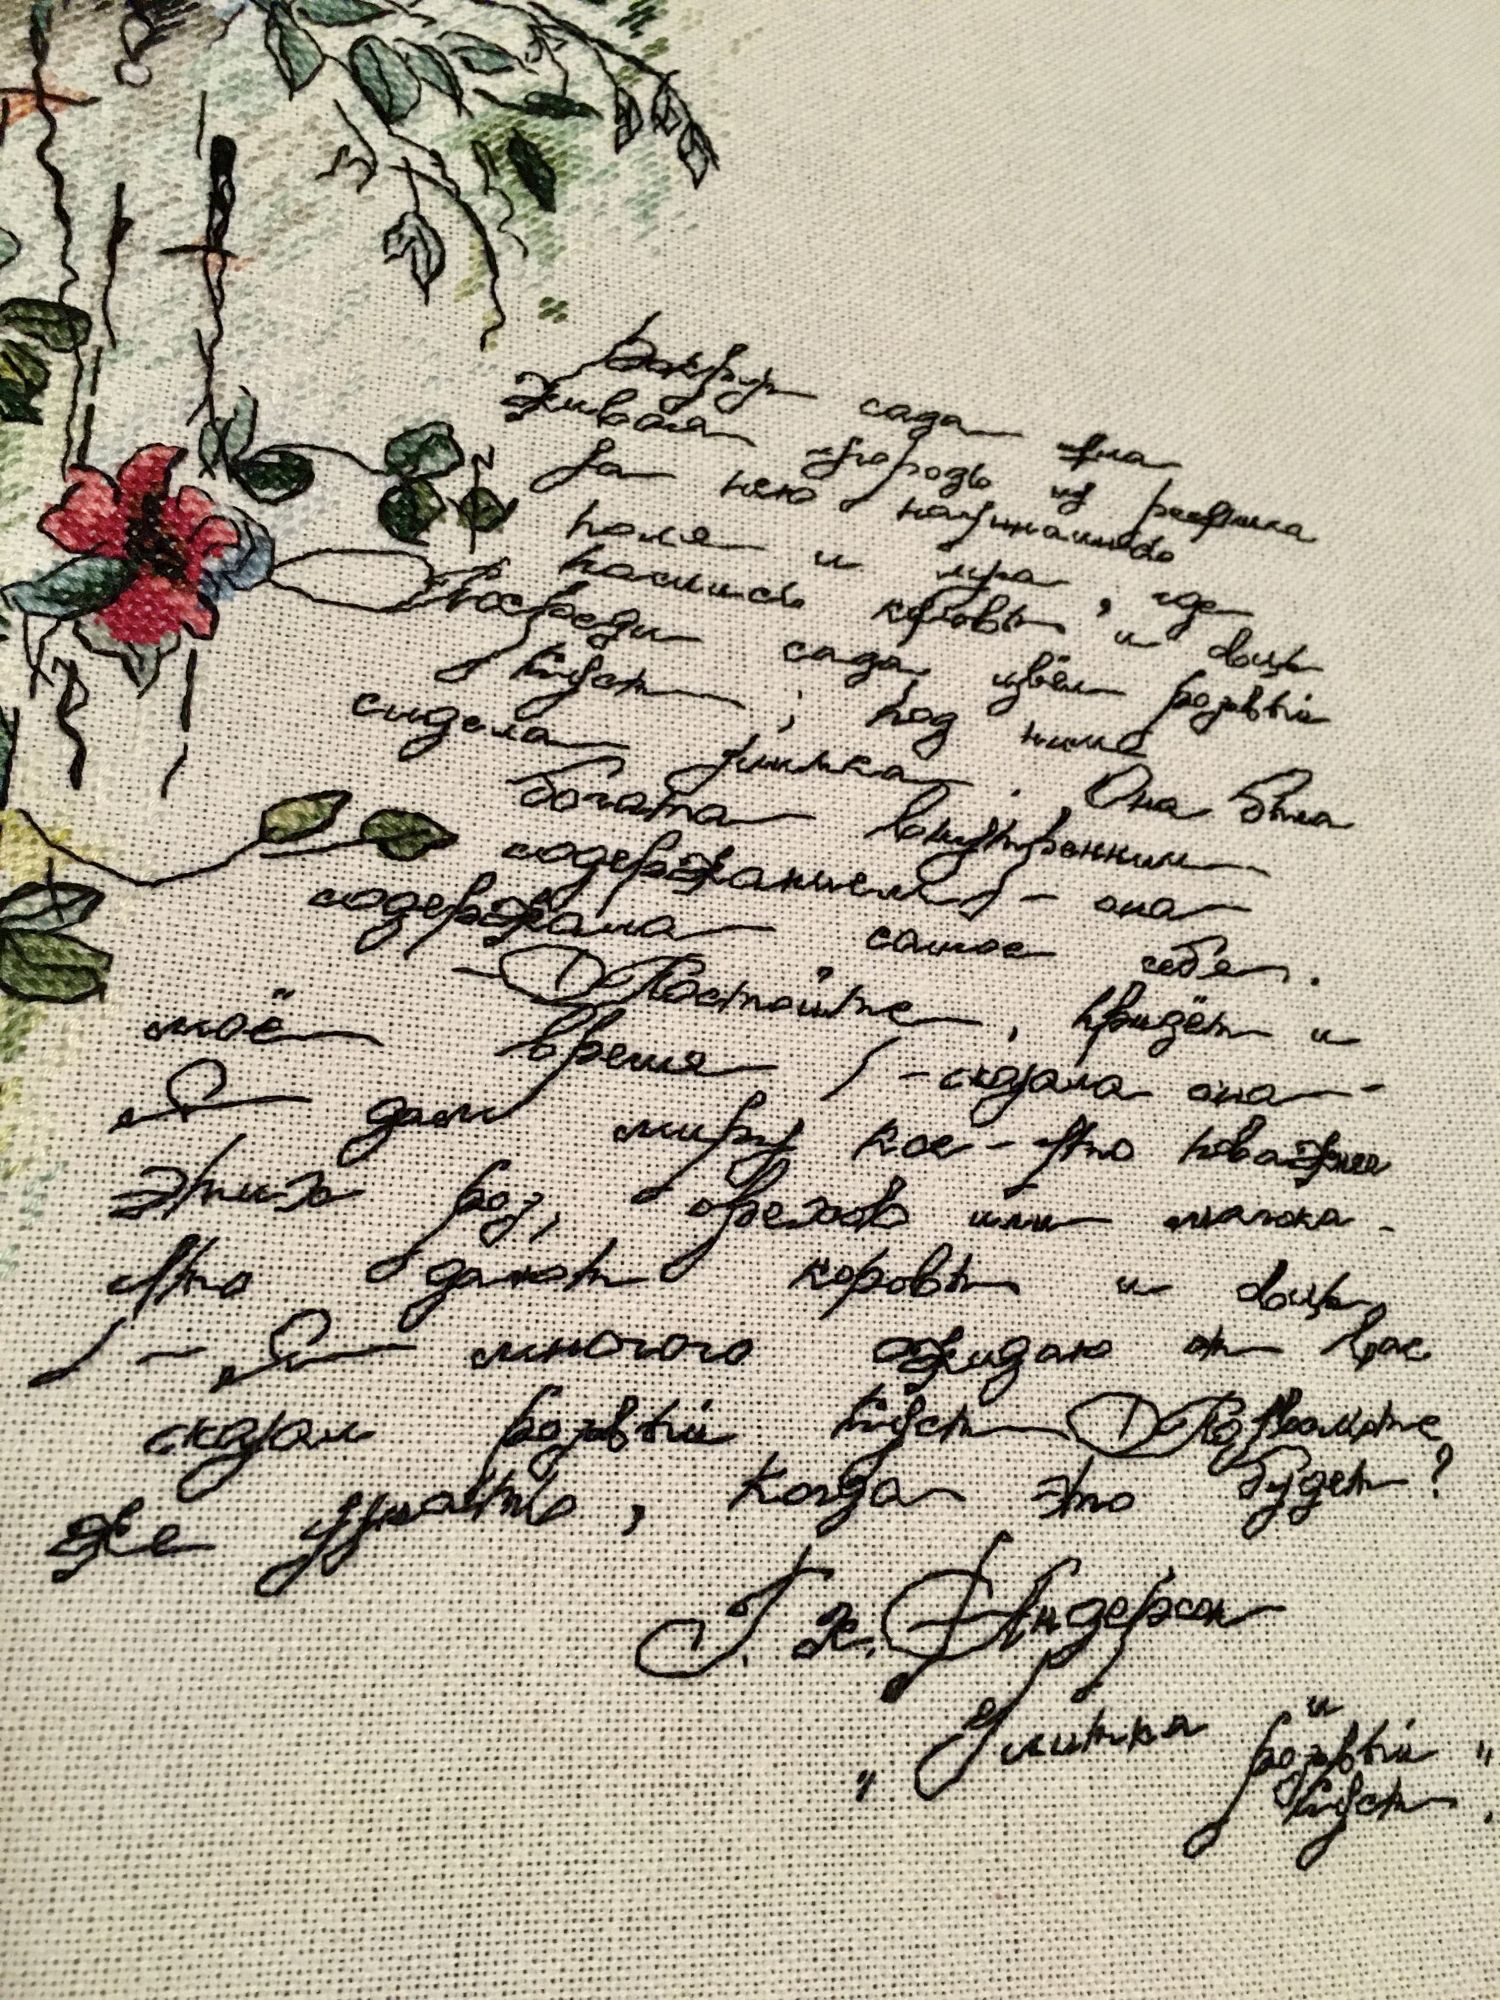 Вокруг сада шла
живая изгородь из орешника
За нею начинались
поля и луга, где
паслись коровы и овцы
Посреди сада цвёл розовый
куст, под ним
сидела улитка. Она была
богата внутренним
содержанием - она
содержала самое себя.
- Постойте, придёт и
моё время! - сказала она -
Я дам миру кое-что поважнее
этих роз, орехов или молока.
что дают коровы и овцы
! - Я многого ожидаю от вас
сказал розовый куст Позвольте
же узнать, когда это будет?
Г. Х. Андерсен
"Улитка и
розовый
куст".